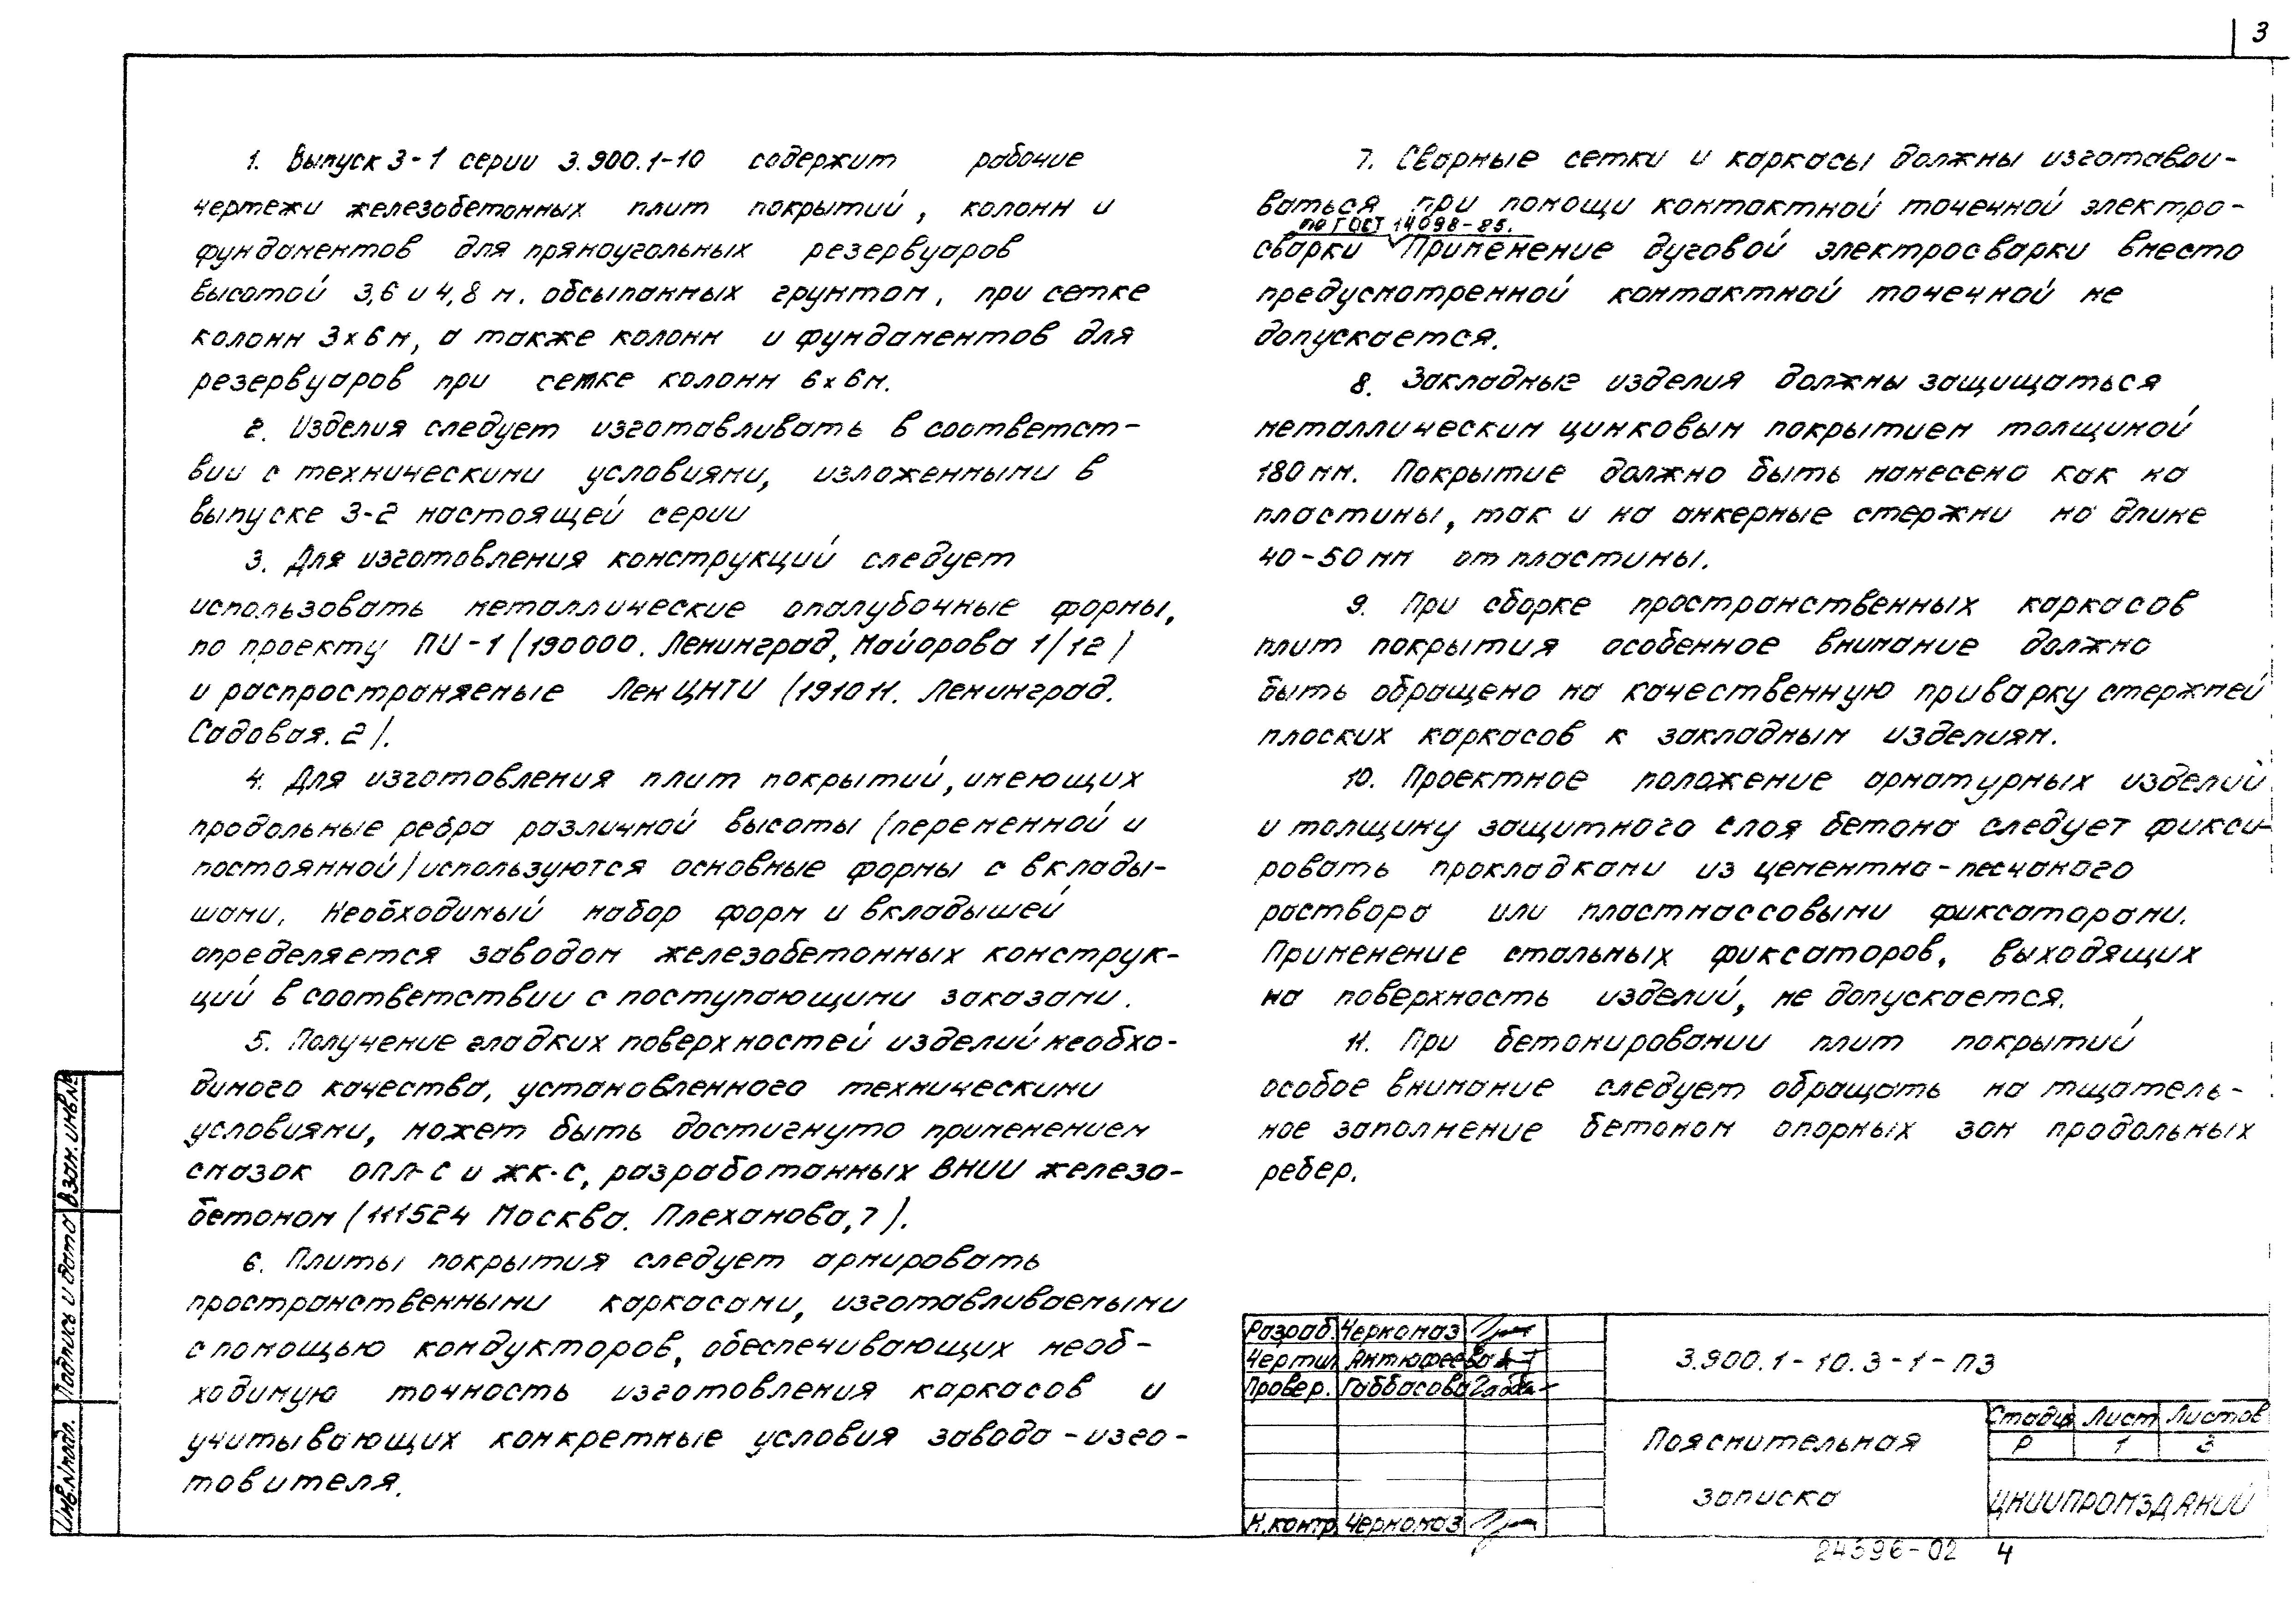 3
1. Выпуск 3-1 серии 3.900.1-10 содержит рабочие
чертежи железобетонных плит покрытий, колонн и
фундаментов для прямоугольных резервуаров
высотой 3,6 и 4,8 м. обсыпанных грунтом, при сетке
колонн 3×6 м, а также колонн и фундаментов для
резервуаров при сетке колонн 6×6м.
2. Изделия следует изготавливать в соответст-
вии с техническими условиями, изложенными в
выпуске 3-2 настоящей серии
3. Для изготовления конструкций следует
использовать металлические опалубочные формы,
по проекту ПИ-1 (190000. Ленинград, Майорова 1/12)
и распространяемые ЛенЦНТИ (191011. Ленинград.
Садовая. 2).
4. Для изготовления плит покрытий, имеющих
продольные ребра различной высоты (переменной и
постоянной) используются основные формы с вклады-
шами. Необходимый набор форм и вкладышей
определяется заводом железобетонных конструк-
ций в соответствии с поступающими заказами.
5. Получение гладких поверхностей изделий необхо-
димого качества, установленного техническими
условиями, может быть достигнуто применением
смазок ОПЛ-С и ЖК-С, разработанных ВНИИ железо-
бетоном (111524 Москва. Плеханова,7).
6. Плиты покрытия следует армировать
пространственными каркасами, изготавливаемыми
с помощью кондукторов, обеспечивающих необ-
ходимую точность изготовления каркасов и
учитывающих конкретные условия завода-изго-
товителя.
7. Сварные сетки и каркасы должны изготавли-
ваться при помощи контактной точечной электро-
по ГОСТ 14098-85.
сварки Применение дуговой электросварки вместо
предусмотренной контактной точечной не
допускается.
8. Закладные изделия должны защищаться
металлическим цинковым покрытием толщиной
180 мм. Покрытие должно быть нанесено как на
пластины, так и на анкерные стержни на длине
40-50 мм от пластины.
9. При сборке пространственных каркасов
плит покрытия особенное внимание должно
быть обращено на качественную приварку стержней
плоских каркасов к закладным изделиям.
10. Проектное положение арматурных изделий
и толщину защитного слоя бетона следует фикси-
ровать прокладками из цементно-песчаного
раствора или пластмассовыми фиксаторами.
Применение стальных фиксаторов, выходящих
на поверхность изделий, не допускается.
11. При бетонировании плит покрытий
особое внимание следует обращать на тщатель-
ное заполнение бетоном опорных зон продольных
ребер.
Взам. инв.№
Подпись и дата
Инв.№подл.
Разраб. Черномаз
Чертил Антюфеева
Провер. Габбасова
Н.контр. Черномаз
3.900.1-10.3-1-ПЗ
Пояснительная
записка
Стадия Лист Листов
Р 1 3
ЦНИИПРОМЗДАНИЙ
24396-02 4